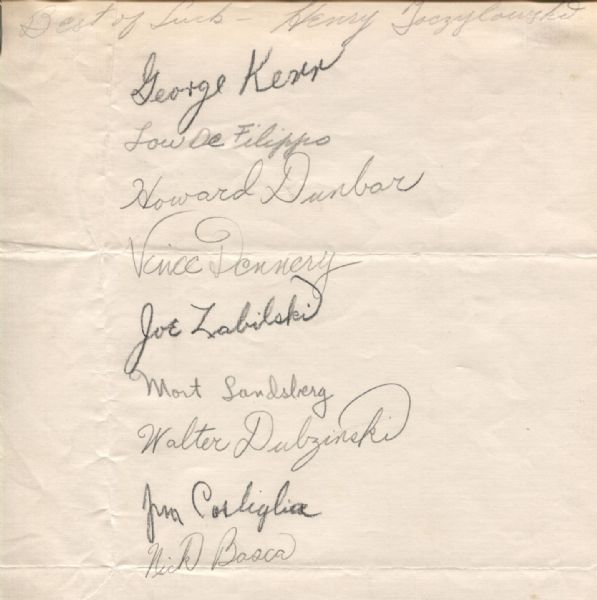 Best of Luck - Henry Toczylowski
George Kerr
Lou De Filippo
Howard Dunbar
Vince Dennery
Joe Zabilski
Mort Landsberg
Walter Dubzinski
Jim Corbiglia
Nick Basca